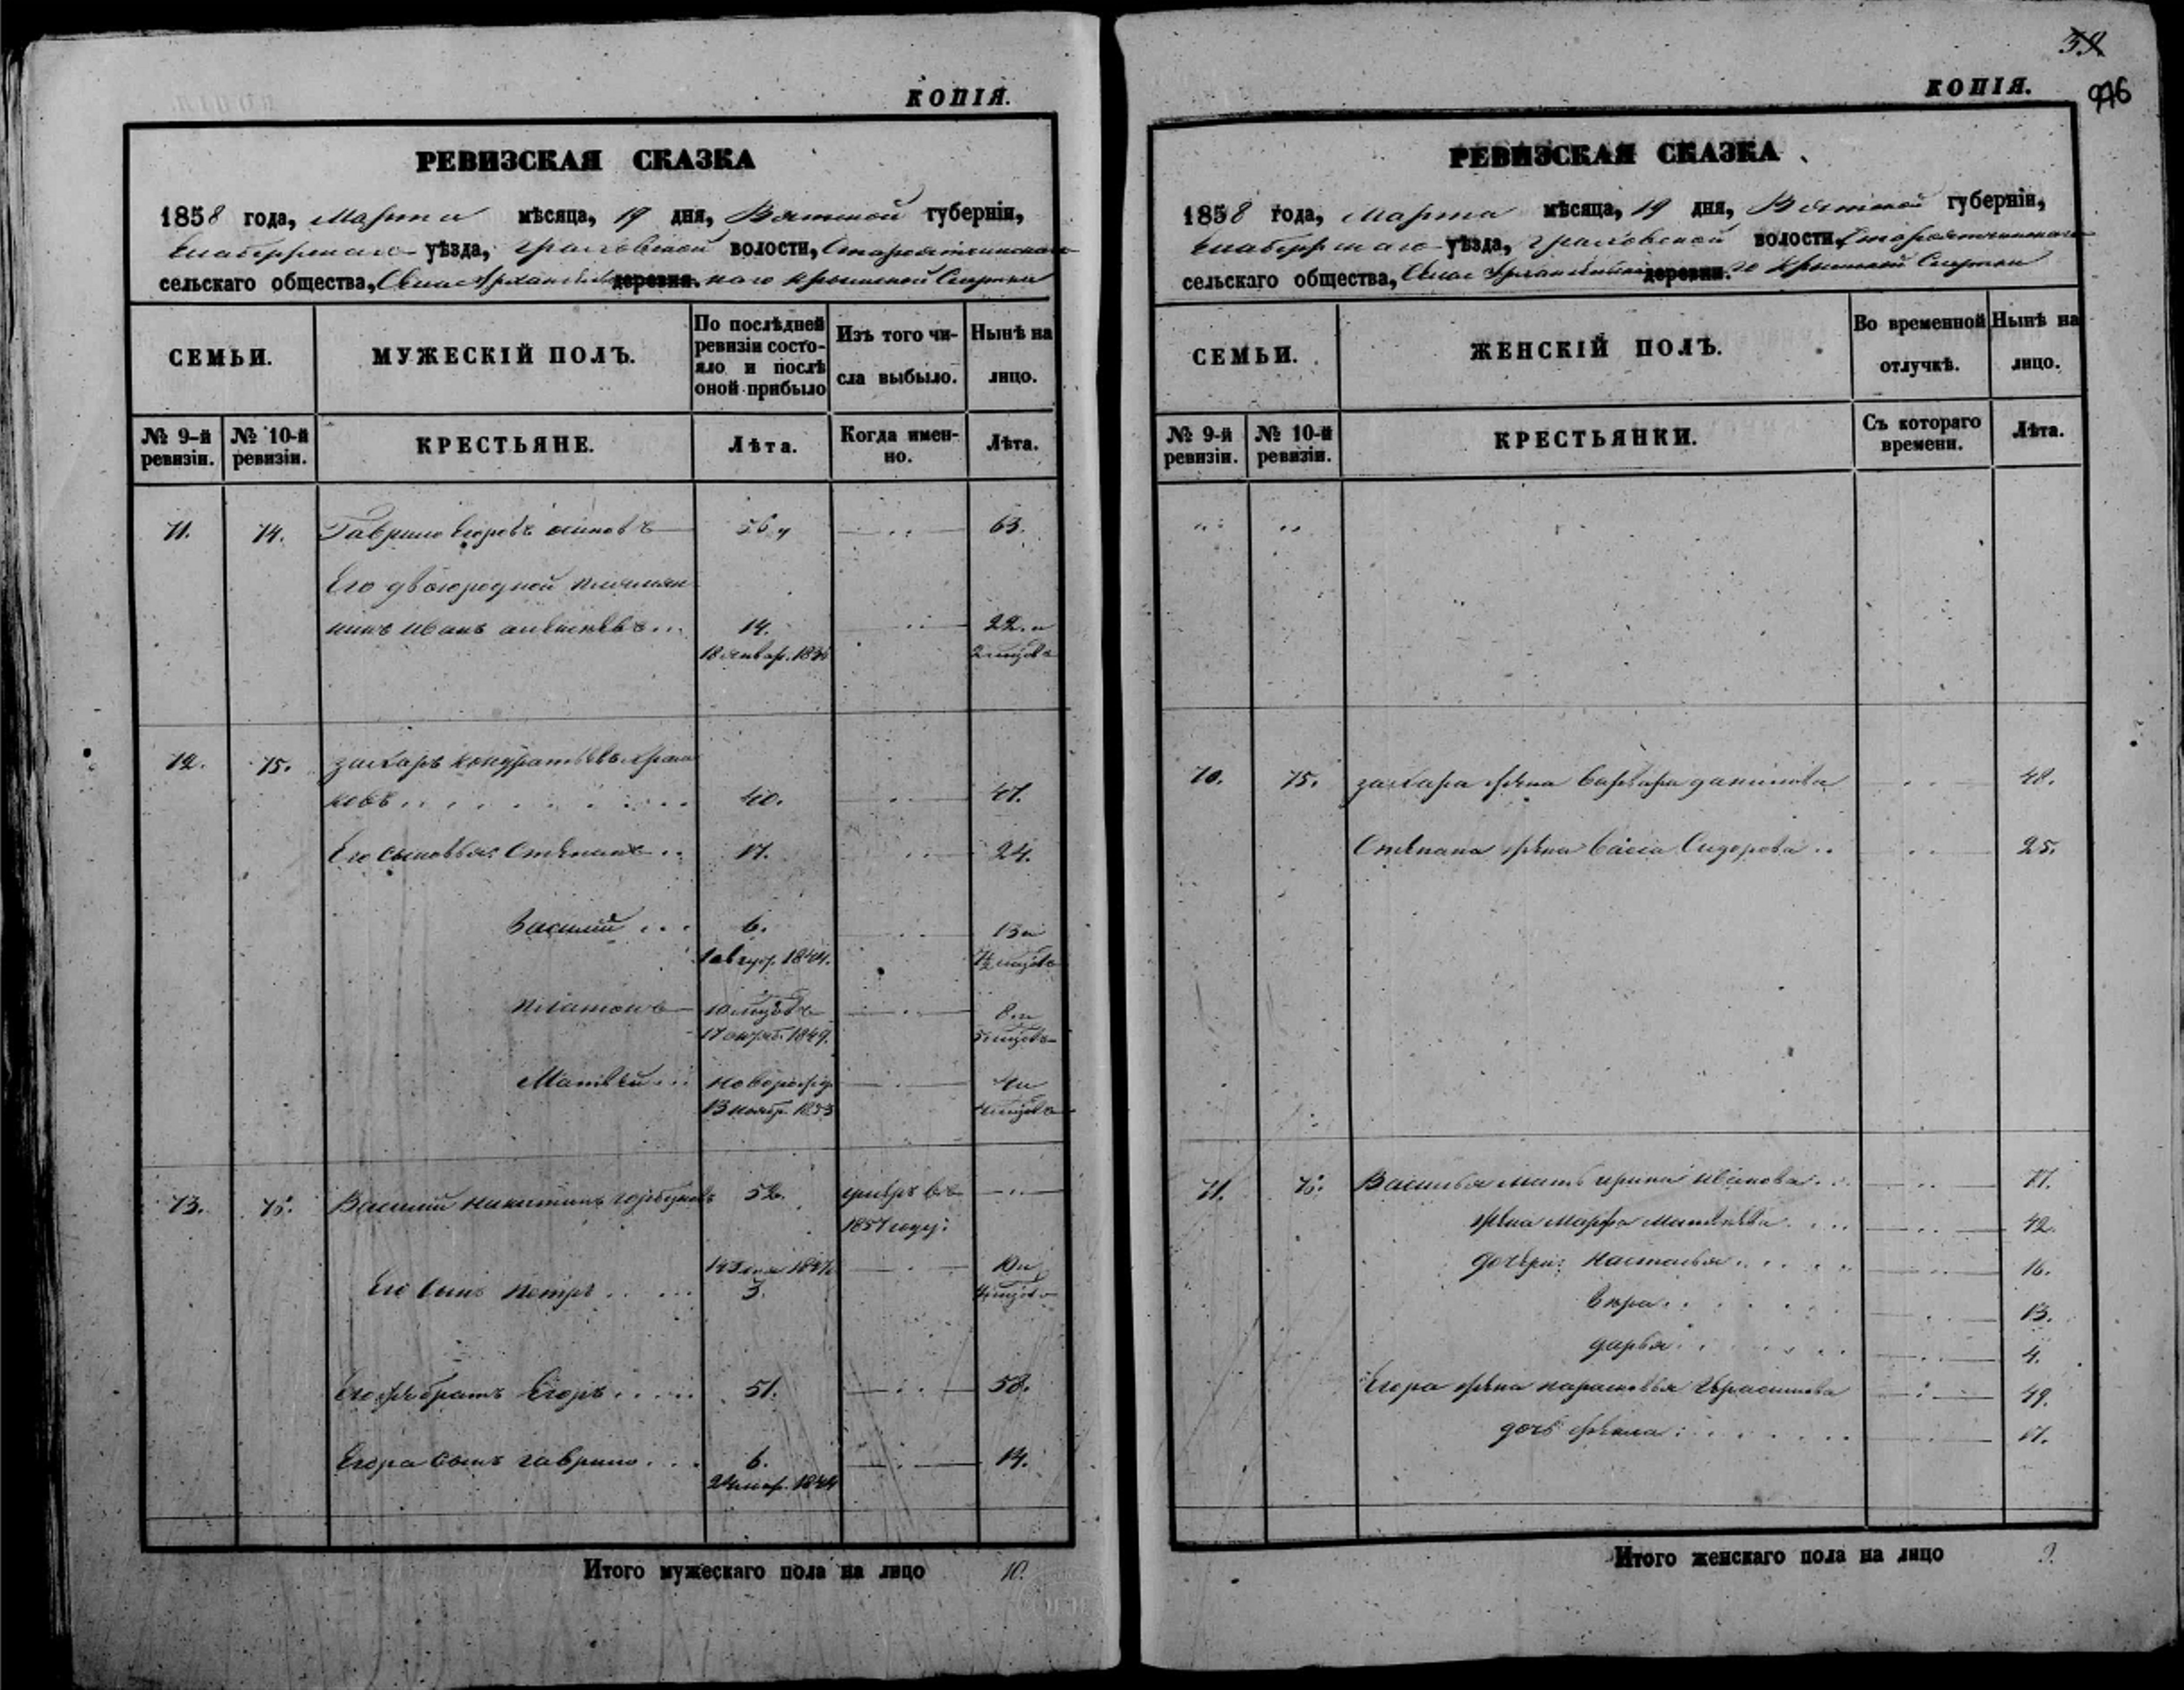 КОПІЯ.
РЕВИЗСКАЯ СКАЗКА
1858 года, Марта мѣсяца, 19 дня, Вятской губерніи,
уѣзда, Граховской волости,
сельскаго общества, Села деревни.
СЕМЬИ.
МУЖЕСКІЙ ПОЛЪ.
По послѣдней ревизіи состояло и послѣ оной прибыло
Изъ того числа выбыло.
Нынѣ на лицо.
№ 9-й ревизіи.
№ 10-й ревизіи.
КРЕСТЬЯНЕ.
Лѣта.
Когда именно.
Лѣта.
71. 74. Гаврило Егоровъ 63.
Его двоюродной племян
никъ Иванъ Алексѣевъ 14. 22. и
2 мцовъ
72. 75. Захаръ Кондратьевъ
ковъ 40. 47.
Его сыновья: Степанъ 17. 24.
Василий 6. 13 и
1 авгус. 1844.
Платонъ 10 мцовъ 8 и
17 октяб. 1849. 5 мцовъ
Матвѣй новорожд. 4 и
13 ноябр. 1853 4 мцовъ
73. 76. Василий Никитинъ Горбуновъ 52. умеръ въ
1857 году.
10 и
Его сынъ Петръ 3. 4 мцовъ
Его же братъ Егоръ 51. 58.
Егора сынъ Гаврило 6. 14.
24 мар. 1844
Итого мужескаго пола на лицо 10.
КОПІЯ.
976
РЕВИЗСКАЯ СКАЗКА
1858 года, Марта мѣсяца, 19 дня, Вятской губерніи,
уѣзда, Граховской волости,
сельскаго общества, Села деревни.
СЕМЬИ.
ЖЕНСКІЙ ПОЛЪ.
Во временной отлучкѣ.
Нынѣ на лицо.
№ 9-й ревизіи.
№ 10-й ревизіи.
КРЕСТЬЯНКИ.
Съ котораго времени.
Лѣта.
70. 75. Захара жена Варвара Данилова 48.
Степана жена Васса Сидорова 25.
71. 76. Василья мать Ирина Иванова 77.
жена Марфа Матвѣева 42.
дочери: Настасья 16.
Вѣра 13.
Дарья 4.
Егора жена Парасковья Герасимова 49.
дочь 17.
Итого женскаго пола на лицо 9.